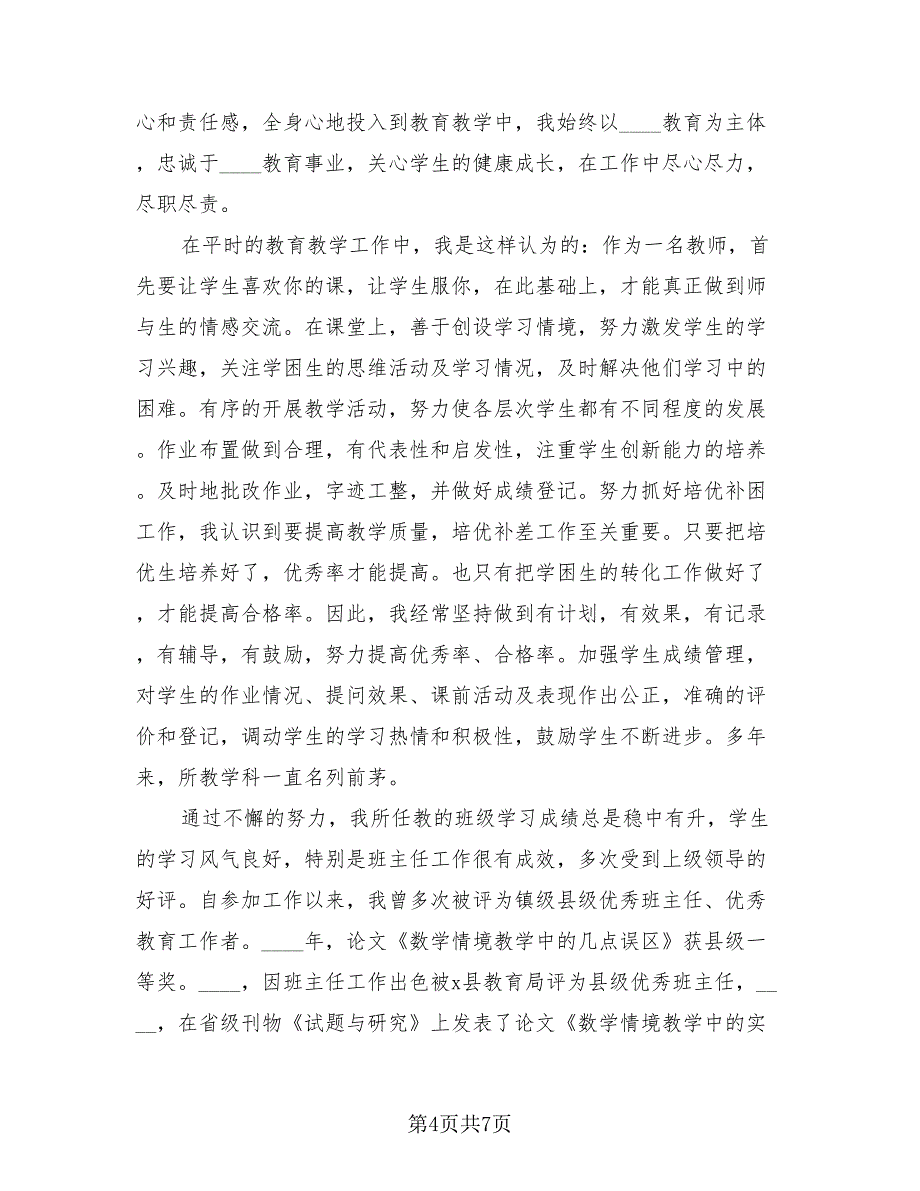 心和责任感，全身心地投入到教育教学中，我始终以____教育为主体
，忠诚于____教育事业，关心学生的健康成长，在工作中尽心尽力，
尽职尽责。
在平时的教育教学工作中，我是这样认为的：作为一名教师，首
先要让学生喜欢你的课，让学生服你，在此基础上，才能真正做到师
与生的情感交流。在课堂上，善于创设学习情境，努力激发学生的学
习兴趣，关注学困生的思维活动及学习情况，及时解决他们学习中的
困难。有序的开展教学活动，努力使各层次学生都有不同程度的发展
。作业布置做到合理，有代表性和启发性，注重学生创新能力的培养
。及时地批改作业，字迹工整，并做好成绩登记。努力抓好培优补困
工作，我认识到要提高教学质量，培优补差工作至关重要。只要把培
优生培养好了，优秀率才能提高。也只有把学困生的转化工作做好了
，才能提高合格率。因此，我经常坚持做到有计划，有效果，有记录
，有辅导，有鼓励，努力提高优秀率、合格率。加强学生成绩管理，
对学生的作业情况、提问效果、课前活动及表现作出公正，准确的评
价和登记，调动学生的学习热情和积极性，鼓励学生不断进步。多年
来，所教学科一直名列前茅。
通过不懈的努力，我所任教的班级学习成绩总是稳中有升，学生
的学习风气良好，特别是班主任工作很有成效，多次受到上级领导的
好评。自参加工作以来，我曾多次被评为镇级县级优秀班主任、优秀
教育工作者。____年，论文《数学情境教学中的几点误区》获县级一
等奖。____，因班主任工作出色被x县教育局评为县级优秀班主任，__
__，在省级刊物《试题与研究》上发表了论文《数学情境教学中的实
第4页共7页